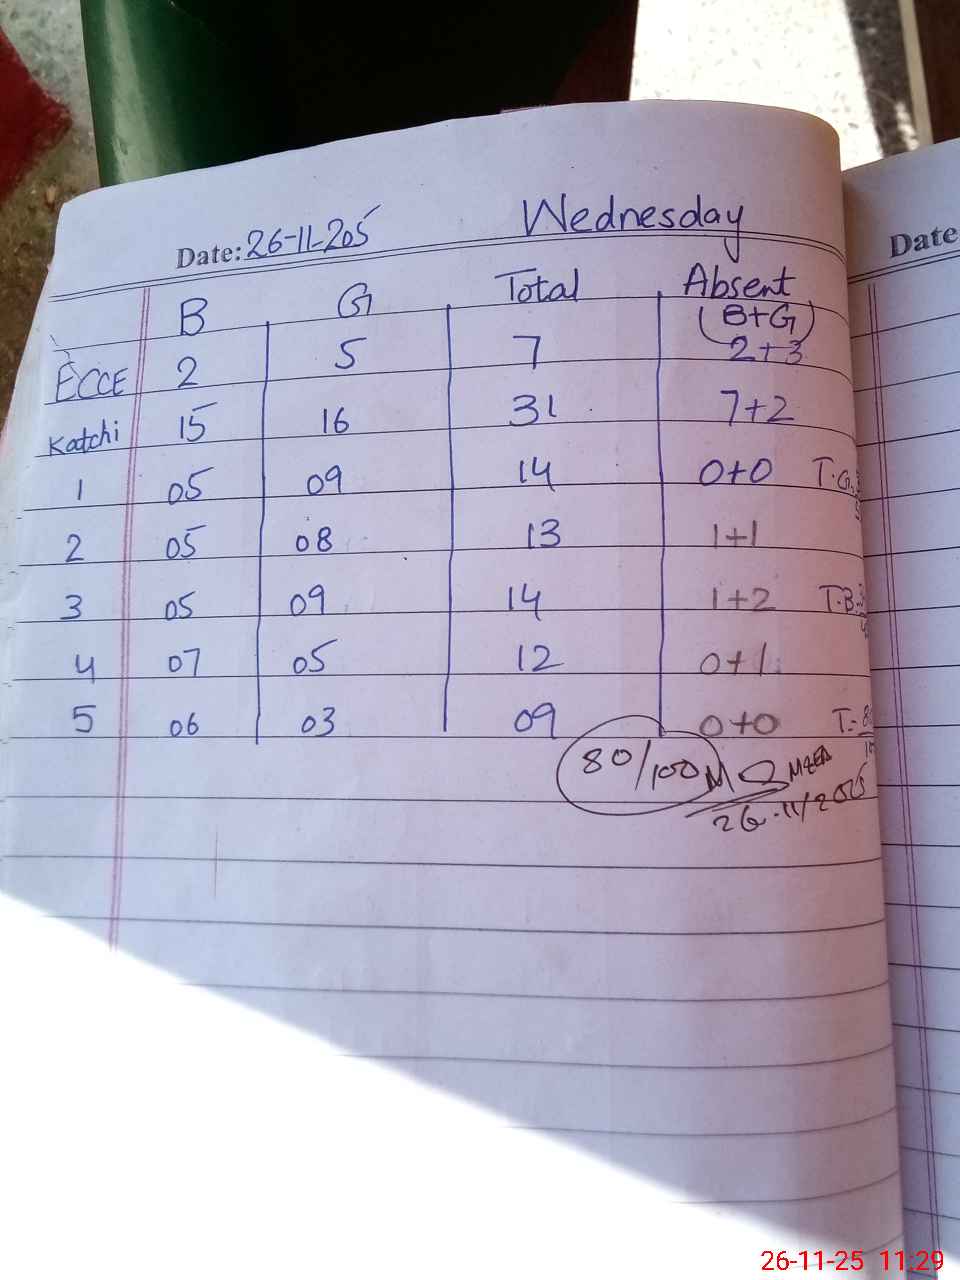 Wednesday
Date: 26-11-205
Date
B G Total Absent
(B+G)
ECCE 2 5 7 2+3
Katchi 15 16 31 7+2
1 05 09 14 0+0 T.G.
2 05 08 13 1+1
3 05 09 14 1+2 T.B.
4 07 05 12 0+1
5 06 03 09 0+0 T=
80/100
26-11/2025
26-11-25 11:29